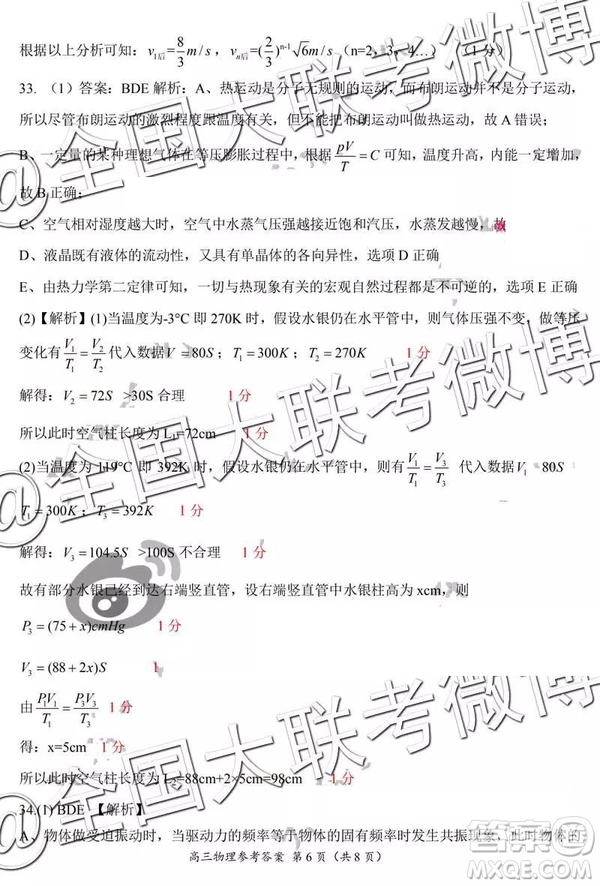 根据以上分析可知:v₁后=8/3 m/s,vₙ后=(2/3)ⁿ⁻¹√6m/s (n=2,3,4…) (1分)
33.(1)答案:BDE 解析:A、热运动是分子无规则的运动,而布朗运动并不是分子运动,
所以尽管布朗运动的激烈程度跟温度有关,但不能把布朗运动叫做热运动,故 A 错误;
B、一定量的某种理想气体在等压膨胀过程中,根据 pV/T=C 可知,温度升高,内能一定增加,
故 B 正确;
C、空气相对湿度越大时,空气中水蒸气压强越接近饱和汽压,水蒸发越慢,故
D、液晶既有液体的流动性,又具有单晶体的各向异性,选项 D 正确
E、由热力学第二定律可知,一切与热现象有关的宏观自然过程都是不可逆的,选项 E 正确
(2)【解析】(1)当温度为-3°C 即 270K 时,假设水银仍在水平管中,则气体压强不变,做等压
变化有 V₁/T₁=V₂/T₂ 代入数据V=80S;T₁=300K;T₂=270K 1分
解得:V₂=72S >30S 合理 1分
所以此时空气柱长度为 L₁=72cm 1分
(2)当温度为 119°C 即 392K 时,假设水银仍在水平管中,则有 V₁/T₁=V₃/T₃ 代入数据V₁ 80S
T₁=300K;T₃=392K 1分
解得:V₃=104.5S >100S 不合理 1分
故有部分水银已经到达右端竖直管,设右端竖直管中水银柱高为 xcm,则
P₃=(75+x)cmHg 1分
V₃=(88+2x)S 1
由 P₁V₁/T₁=P₃V₃/T₃ 1分
得:x=5cm 1分
所以此时空气柱长度为 L₂=88cm+2×5cm=98cm 1分
34.(1) BDE 【解析】
A、物体做受迫振动时,当驱动力的频率等于物体的固有频率时发生共振现象,此时物体的
高三物理参考答案 第 6 页(共 8 页)
@全国大联考微博
@全国大联考微博